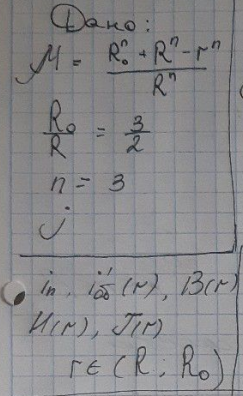 Дано:
μ = (R₀ⁿ + Rⁿ - rⁿ) / Rⁿ
R₀/R = 3/2
n = 3
j
iп, i'об(r), B(r)
H(r), J(r)
r ∈ (R; R₀)